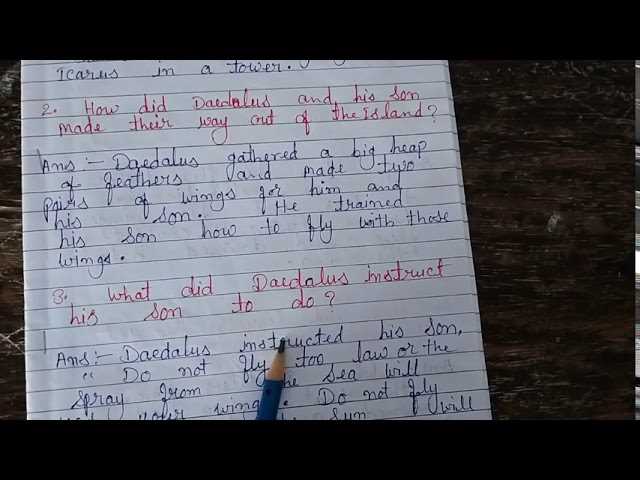 Icarus in a tower.
2. How did Daedalus and his son
made their way out of the Island?
Ans :- Daedalus gathered a big heap
of feathers and made two
pairs of wings for him and
his son. He trained
his son how to fly with those
wings.
3. what did Daedalus instruct
his son to do?
Ans :- Daedalus instructed his son,
" Do not fly too law or the
spray from the sea will
your wings. Do not fly
Sun will